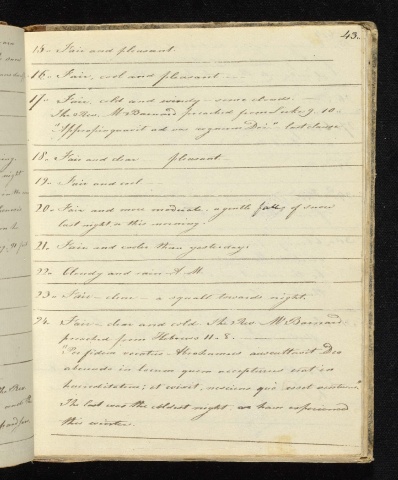 43.
15 - Fair and pleasant.
16 - Fair, cool and pleasant
17 - Fair, cold and windy - some clouds.
The Rev. Mr Barnard preached from Luke 9. 10 -
"Appropinquavit ad vos regnum Dei" last clause
18 - Fair and clear pleasant -
19 - Fair and
20 - Fair and more moderate. a gentle fall of snow
last night & this morning.
21 - Fair and colder than yesterday.
22 - Cloudy and rain A. M.
23 - Fair - clear - a squall towards night.
24. Fair - clear and cold. The Rev. Mr Barnard
preached from Hebrews 11 - 8. -
"Per fidem vocatus Abrahamus auscultavit Deo
abeundo in locum quem accepturus erat in
haereditatem; et exivit, nesciens quò esset venturus"
The last was the coldest night we have experienced
this winter.